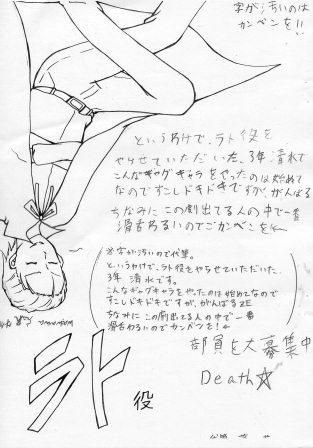 字が汚いのは
カンベンを!!
というわけで、ラト役を
やらせていただいた、3年清水で
こんなギャグキャラをやったのは始めて
なのですこしドキドキですが、がんばる
ちなみに この劇出てる人の中で一番
滑舌わるいのでごカンベンを
※字が汚いので代筆。
というわけで、ラト役をやらせていただいた
3年 清水です。
こんなギャグキャラをやったのは始めてなので
すこしドキドキですが、がんばるZE
ちなみに この劇出てる人の中で一番
滑舌わるいのでカンベンを!
部員を大募集中
Death☆
ラト役